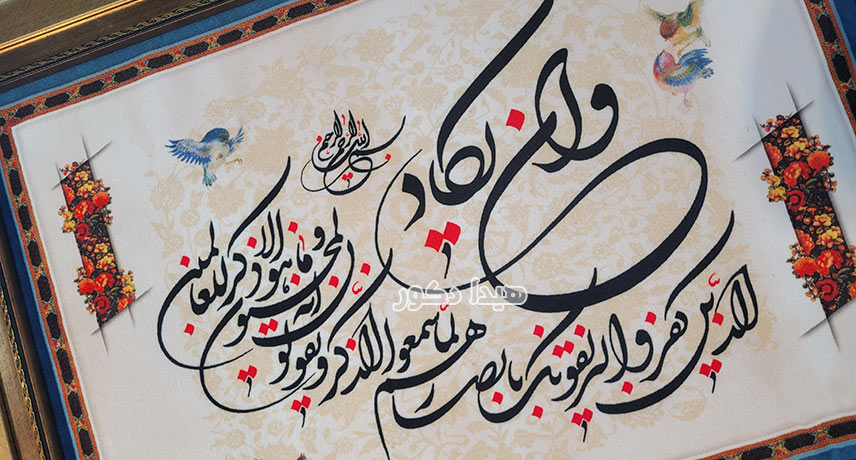 بسم الله الرحمن الرحیم
وان یکاد
الذین کفروا لیزلقونک بابصارهم لما سمعوا الذکر و یقولون
انه لمجنون
و ما هو الا ذکر للعالمین
هیدا دکور